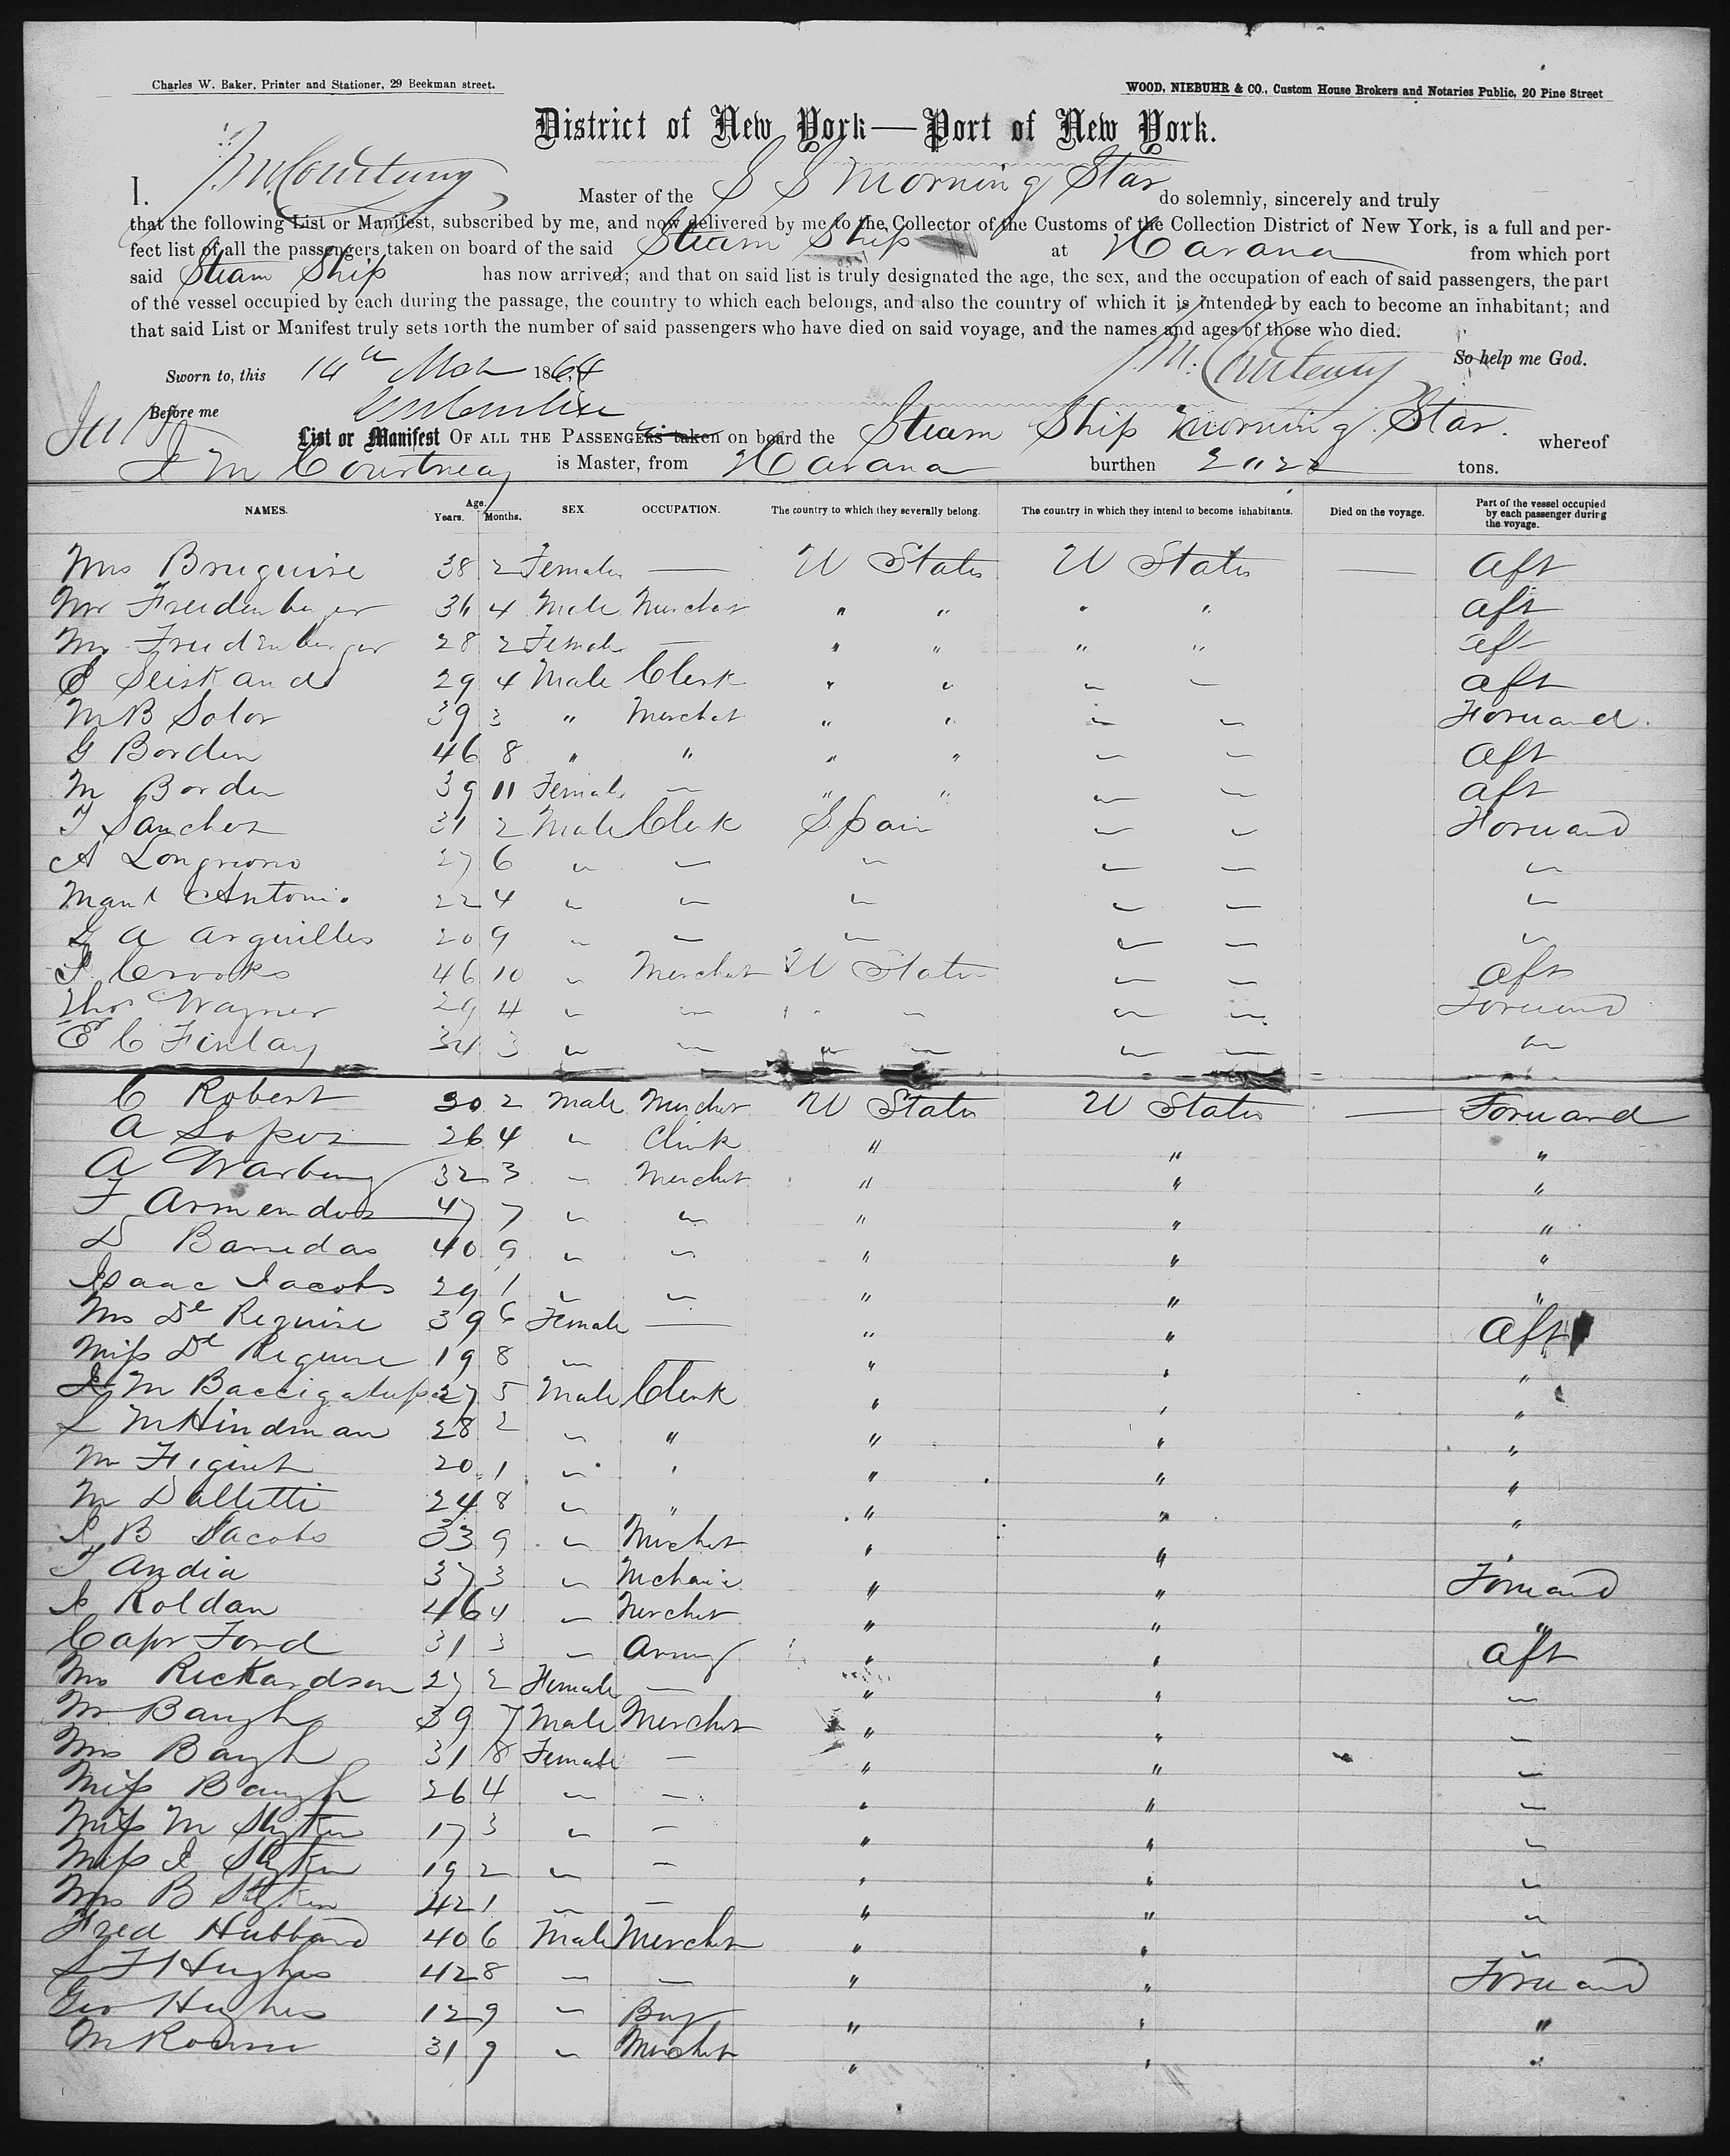 Charles W. Baker, Printer and Stationer, 29 Beekman street.
WOOD, NIEBUHR & CO., Custom House Brokers and Notaries Public, 20 Pine Street
District of New York—Port of New York.
I. J. M. Courtney Master of the S S Morning Star do solemnly, sincerely and truly
that the following List or Manifest, subscribed by me, and now delivered by me to the Collector of the Customs of the Collection District of New York, is a full and per-
fect list of all the passengers taken on board of the said Steam Ship at Havana from which port
said Steam Ship has now arrived; and that on said list is truly designated the age, the sex, and the occupation of each of said passengers, the part
of the vessel occupied by each during the passage, the country to which each belongs, and also the country of which it is intended by each to become an inhabitant; and
that said List or Manifest truly sets forth the number of said passengers who have died on said voyage, and the names and ages of those who died.
So help me God.
Sworn to, this 14th Mch 1864 J. M. Courtney
Before me
List or Manifest OF ALL THE PASSENGERS taken on board the Steam Ship Morning Star. whereof
J M Courtney is Master, from Havana burthen 2022 tons.
NAMES. Age. Years. Months. SEX. OCCUPATION. The country to which they severally belong. The country in which they intend to become inhabitants. Died on the voyage. Part of the vessel occupied by each passenger during the voyage.
Mrs Bruguire 38 2 Female — U States U States — Aft
Mr Freidenberger 36 4 Male Merchat " " " " aft
Mrs Freudenberger 28 2 Female — " " " " aft
29 4 Male Clerk " " " " aft
M B Soler 39 3 " Merchat " " " " Forward
G Borden 46 8 " " " " " " Aft
M Borden 39 11 Female — " " " " aft
J Sanchez 31 2 Male Clerk Spain " " Forward
A 27 6 " " " " " "
Manl Antonio 22 4 " " " " " "
G A Arguilles 20 9 " " " " " "
J Crooks 46 10 " Merchat U States " " Aft
Thos Wagner 29 4 " " " " " " Forward
E C Finlay 34 3 " " " " " " "
C Robert 30 2 Male Merchat U States U States — Forward
A Lopez 26 4 " Clerk " " "
A Warburg 32 3 " Merchat " " "
F Armendos 47 7 " " " " "
D Barredas 40 9 " " " " "
Isaac Jacobs 29 1 " " " " "
Mrs De Require 39 6 Female — " " Aft
Miss De Require 19 8 " — " " "
J M Baccigalupo 27 5 Male Clerk " " "
L M Hindman 28 2 " " " " "
M 20 1 " " " " "
M Dalletti 24 8 " " " " "
J B Jacobs 33 9 " Merchat " " "
T Andia 37 3 " Mechanic " " Forward
J Roldan 46 4 " Merchat " " "
Capt Ford 31 3 " Army " " Aft
Mrs Rickardson 27 2 Female — " " "
Mr Baugh 39 7 Male Merchat " " "
Mrs Baugh 31 8 Female — " " "
Miss Baugh 26 4 " — " " "
Miss M 17 3 " — " " "
Miss J 19 2 " — " " "
Mrs B 42 1 " — " " "
Fred Hubbard 40 6 Male Merchat " " "
L F Hughes 42 8 " — " " Forward
Geo Hughes 12 9 " Boy " " "
M 31 9 " Merchat " " "